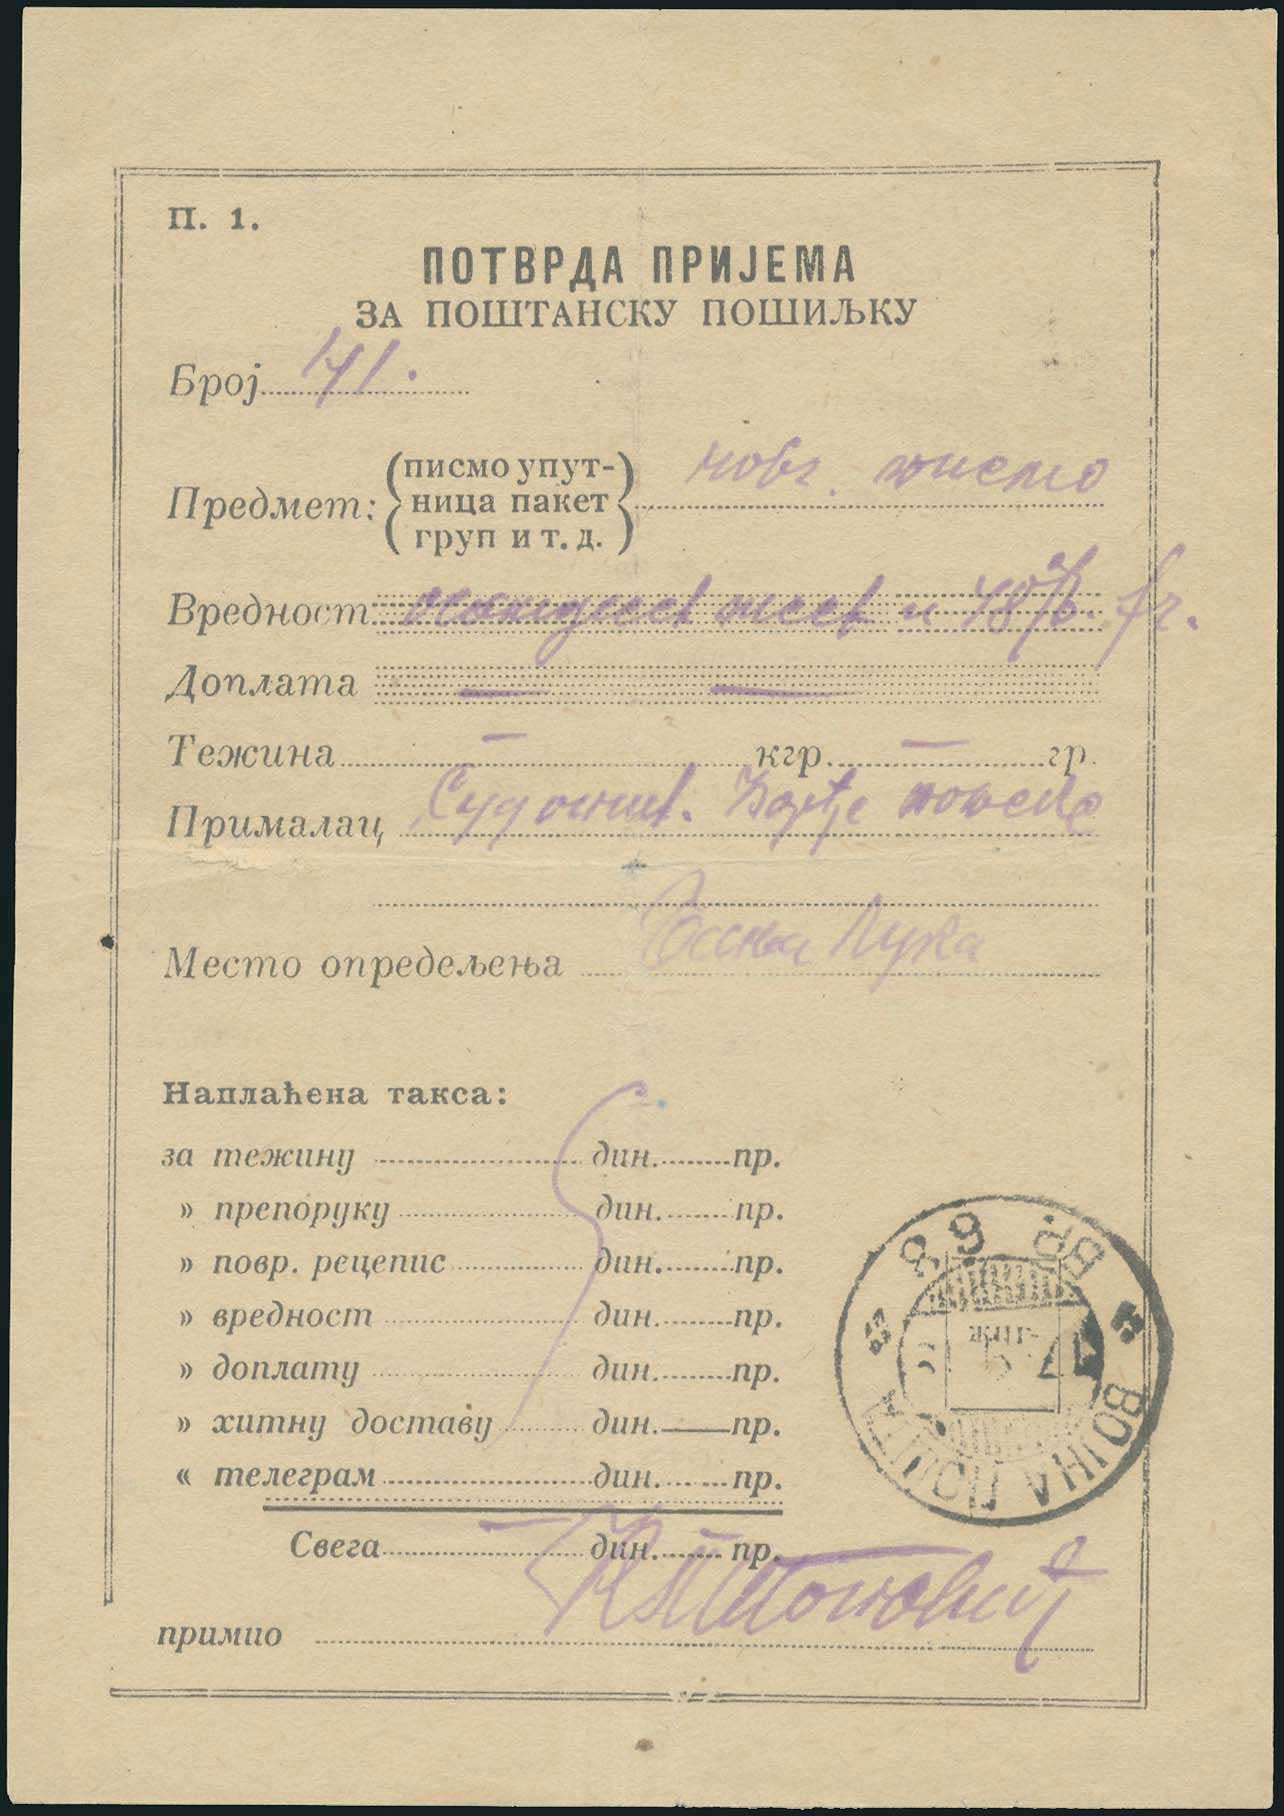 П. 1.
ПОТВРДА ПРИЈЕМА
ЗА ПОШТАНСКУ ПОШИЉКУ
Број 141.
Предмет: (писмо упутница пакет груп и т. д.) новч. писмо
Вредност и 48
Доплата — —
Тежина — кгр. — гр.
Прималац
Место опредељења Лука
Наплаћена такса:
за тежину дин. пр.
» препоруку дин. пр.
» повр. рецепис дин. пр.
» вредност дин. пр.
» доплату дин. пр.
» хитну доставу дин. пр.
« телеграм дин. пр.
Свега — дин. — пр.
примио
ВОЈНА ПОШТА БР.